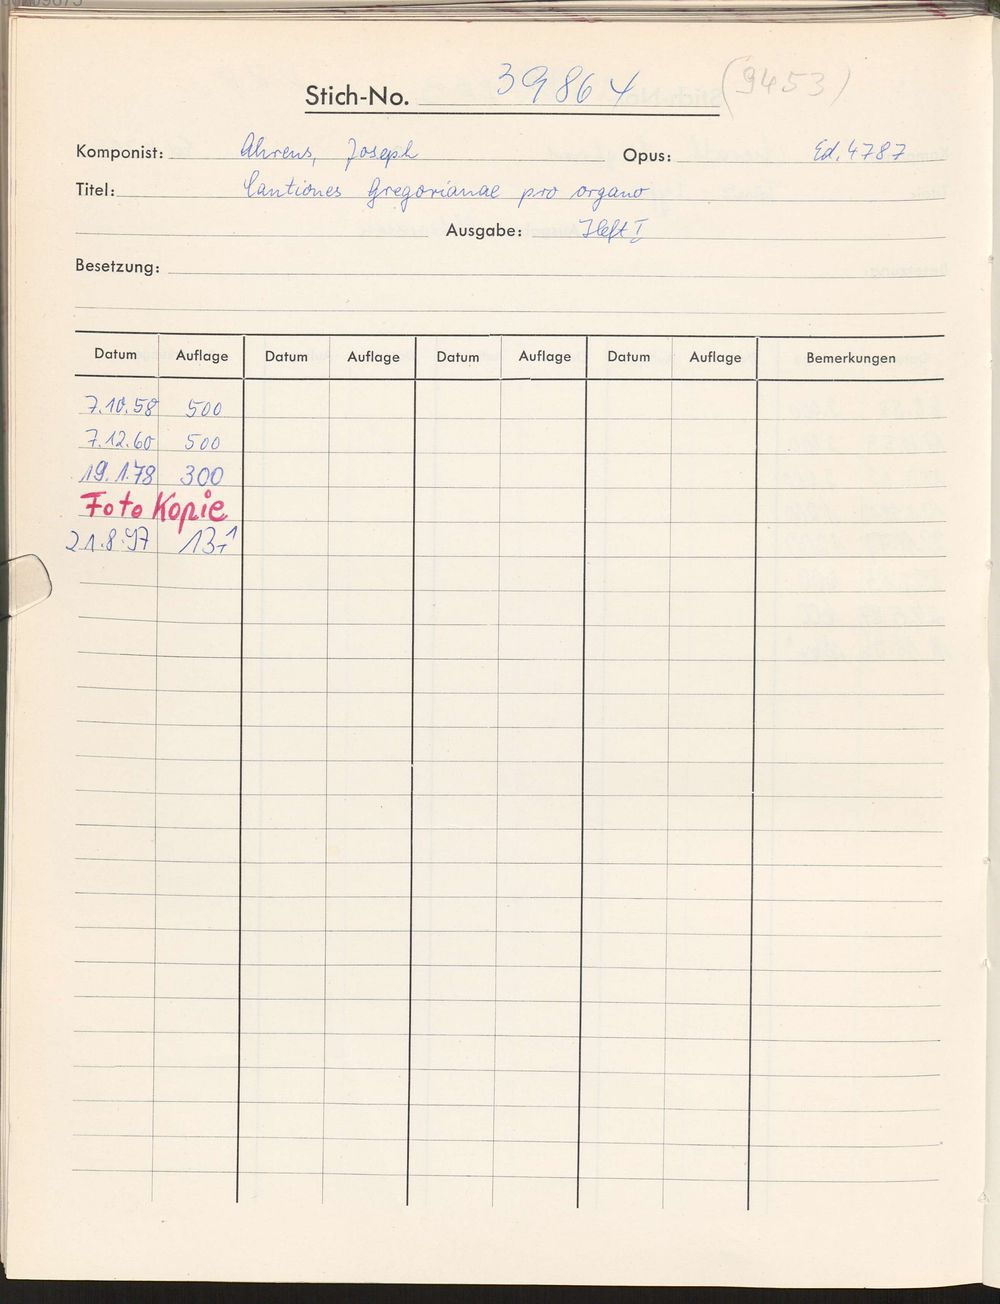 Stich-No. 39864 (9453)
Komponist: Ahrens, Joseph Opus: Ed. 4787
Titel: Cantiones Gregorianae pro organo
Ausgabe: Heft I
Besetzung:
Datum Auflage Datum Auflage Datum Auflage Datum Auflage Bemerkungen
7.10.58 500
7.12.60 500
19.1.78 300
Foto Kopie
21.8.97